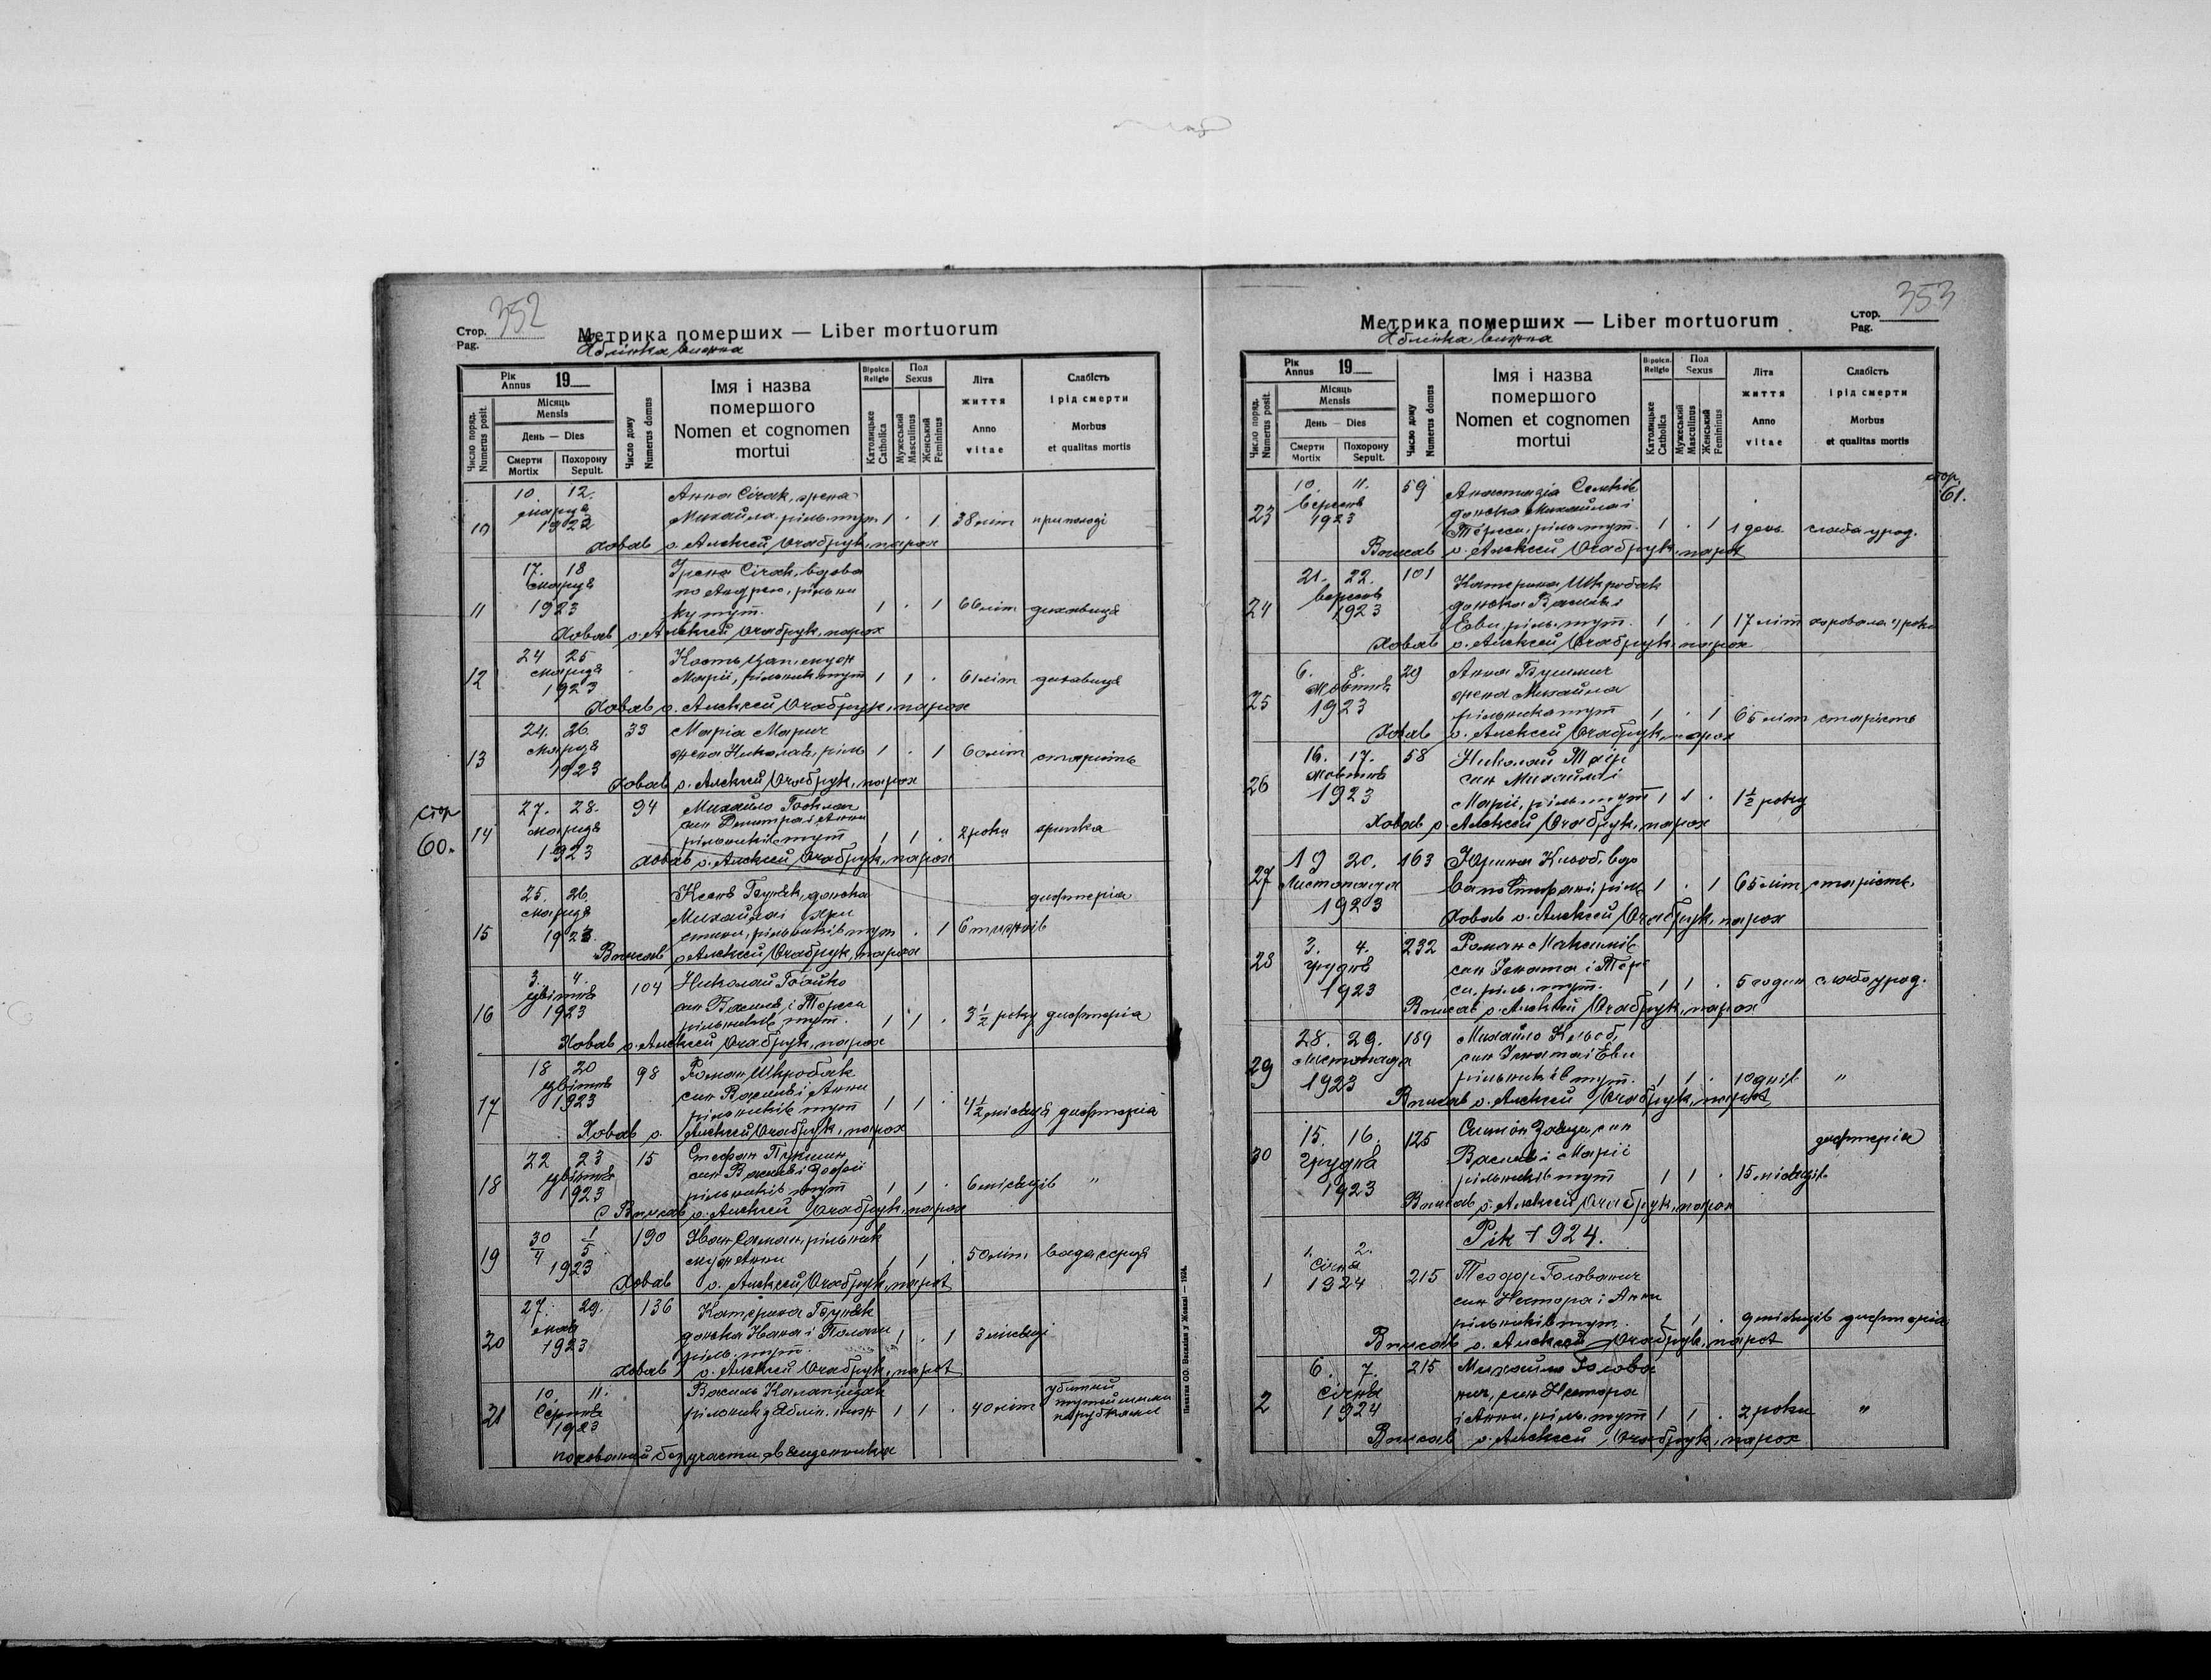 Стор. 352
Pag.
Метрика померших — Liber mortuorum
Яблінка вижна
Рік Annus 19
Число поряд. Numerus posit.
Місяць Mensis
День — Dies
Смерти Mortix
Похорону Sepult.
Число дому Numerus domus
Імя і назва помершого
Nomen et cognomen mortui
Віроісп. Religio
Католицьке Catholica
Пол Sexus
Мужеський Masculinus
Женський Femininus
Літа життя
Anno vitae
Слабість і рід смерти
Morbus et qualitas mortis
10. 12. Анна Січак, жена
10 марця 1923 Михайла, ріль. тут. 1 . 1 38 літ при пологі
Ховав о. Алексей Очабрук, парох
17. 18 Ірена Січак, вдова
марця по Андрею, рільни
11 1923 ку тут. 1 . 1 66 літ духавиця
Ховав о. Алексей Очабрук, парох
24 25 Кость Цап, муж
12 марця 1923 Марії, рільник тут 1 1 . 61 літ духавиця
Ховав о. Алексей Очабрук, парох
24. 26. 33 Марія Марич
13 марця 1923 жена Николая, ріль 1 . 1 60 літ старість
Ховав о. Алексей Очабрук, парох
стор 60.
27. 28. 94 Михайло
марця син Дмитра і Анни
14 1923 рільників тут 1 1 . 2 роки грипка
Ховав о. Алексей Очабрук, парох
25. 26. Ксеня Буняк, донька дифтерія
марця Михайла і Хри
15 1923 стини, рільників тут . 1 6 тижнів
Вписав о. Алексей Очабрук, парох
3. 4. 104 Николай Бойко
цвітня син Василя і Тереси
16 1923 рільників тут. 1 1 . 3 1/2 року дифтерія
Ховав о. Алексей Очабрук, парох
18 20 98 Роман Шкробак
цвітня син Василя і Анни
17 1923 рільників тут 1 1 . 4 1/2 місяця дифтерія
Ховав о. Алексей Очабрук, парох
22 23 15 Стефан Пукшин
цвітня син Василя і Зофії
18 1923 рільників тут 1 1 . 6 місяців "
Вписав о. Алексей Очабрук, парох
30/4 1/5 190 Іван Саман, рільник
19 1923 муж Анни 1 1 . 50 літ вада серця
Ховав о. Алексей Очабрук, парох
27. 29. 136 Катерина Буняк
мая донька Ивана і Полани
20 1923 ріль. тут. 1 . 1 3 місяці
Ховав о. Алексей Очабрук, парох
10. 11. Василь убитий
21 Серпня рільник з Яблін. ниж 1 1 . 40 літ тутейшими
1923 парубками
похований без участи священника
Печатня ОО. Василіян у Жовкві — 1924.
Стор. 353
Pag.
Метрика померших — Liber mortuorum
Яблінка вижна
Рік Annus 19
Число поряд. Numerus posit.
Місяць Mensis
День — Dies
Смерти Mortix
Похорону Sepult.
Число дому Numerus domus
Імя і назва помершого
Nomen et cognomen mortui
Віроісп. Religio
Католицьке Catholica
Пол Sexus
Мужеський Masculinus
Женський Femininus
Літа життя
Anno vitae
Слабість і рід смерти
Morbus et qualitas mortis
стор. 61.
10. 11. 59 Анастазія Семків
вересня донька Михайла і
23 1923 Тереси, ріль. тут. 1 . 1 1 день слаба урод.
Вписав о. Алексей Очабрук, парох
21. 22. 101 Катерина Шкробак
вересня донька Василя і
24 1923 Еви, ріль. тут. 1 . 1 17 літ хоровала 4 роки
Ховав о. Алексей Очабрук, парох
6. 8. 29 Анна
жовтня жена Михайла
25 1923 рільника тут 1 . 1 65 літ старість
Ховав о. Алексей Очабрук, парох
16. 17. 58 Николай
жовтня син Михайла і
26 1923 Марії, ріль. тут 1 1 . 1 1/2 року
Ховав о. Алексей Очабрук, парох
19 20. 163 Юрина Кльоб, вдо
27 Листопада ва по Стефані, ріль 1 . 1 65 літ старість.
1923
Ховав о. Алексей Очабрук, парох
3. 4. 232 Роман Максимів
28 грудня син Ігната і Тере
1923 си, ріль. тут. 1 1 . 5 годин слабо урод.
Вписав о. Алексей Очабрук, парох
28. 29. 189 Михайло Кльоб,
листопада син Ігната і Еви
29 1923 рільників тут. 1 1 . 10 днів "
Вписав о. Алексей Очабрук, парох
15. 16. 125 Симеон Заяць, син дифтерія
30 грудня Василя і Марії
1923 рільників тут 1 1 . 15 місяців
Вписав о. Алексей Очабрук, парох
Рік 1924.
1. 2.
січня
1 1924 215 Теодор Головачич
син Нестора і Анни
рільників тут. 1 1 . 9 місяців дифтерія
Вписав о. Алексей Очабрук, парох
6. 7. 215 МихайлоГолова
січня чич, син Нестора
2 1924 і Анни, ріль. тут 1 1 . 2 роки "
Вписав о. Алексей Очабрук, парох